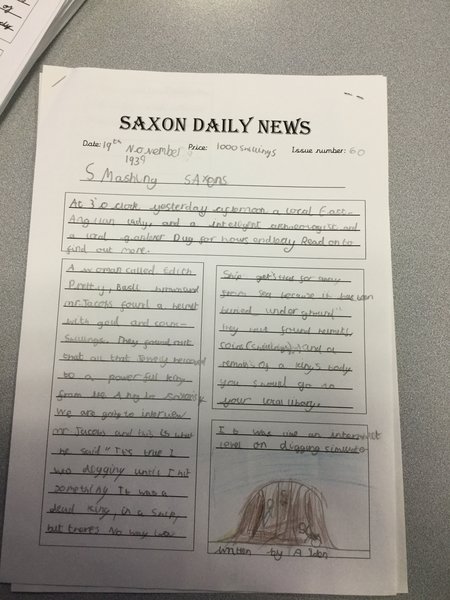 SAXON DAILY NEWS
Date: 19th November 1939 Price: 1000 Shillings Issue number: 60
S Mashing SAxons
At 3'o clock yesterday afternoon a local East
Anglian lady, and a intelligent archaeologist and
a local gardner Dug for hours endlessly Read on to
find out more.
A woman called Edith
Pretty, Basil brown and
mr Jacobs found a helmet
with gold and coins-
Shillings. They found out
that all that Jewelry belonged
to a powerful king
from the Anglo Saxons
We are going to interview
mr Jacobs and this is what
he said "It's true I
was digging until I hit
something It was a
dead king, in a ship,
but there's No way
Ship get's that far away
from sea because it has been
buried under ground."
They out found helmets,
coins (shillings), and a
remains of a King's body
you should go to
your local library.
It was like an
level on digging
written by A